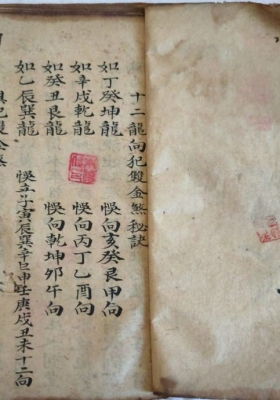 十二龍向犯雙金煞秘訣
如丁癸坤龍 悮向亥癸艮甲向
如辛戌乾龍 悮向丙丁乙酉向
如癸丑艮龍 悮向乾坤卯午向
如乙辰巽龍 悮立子寅辰巽辛巳申壬庚戌丑未十二向